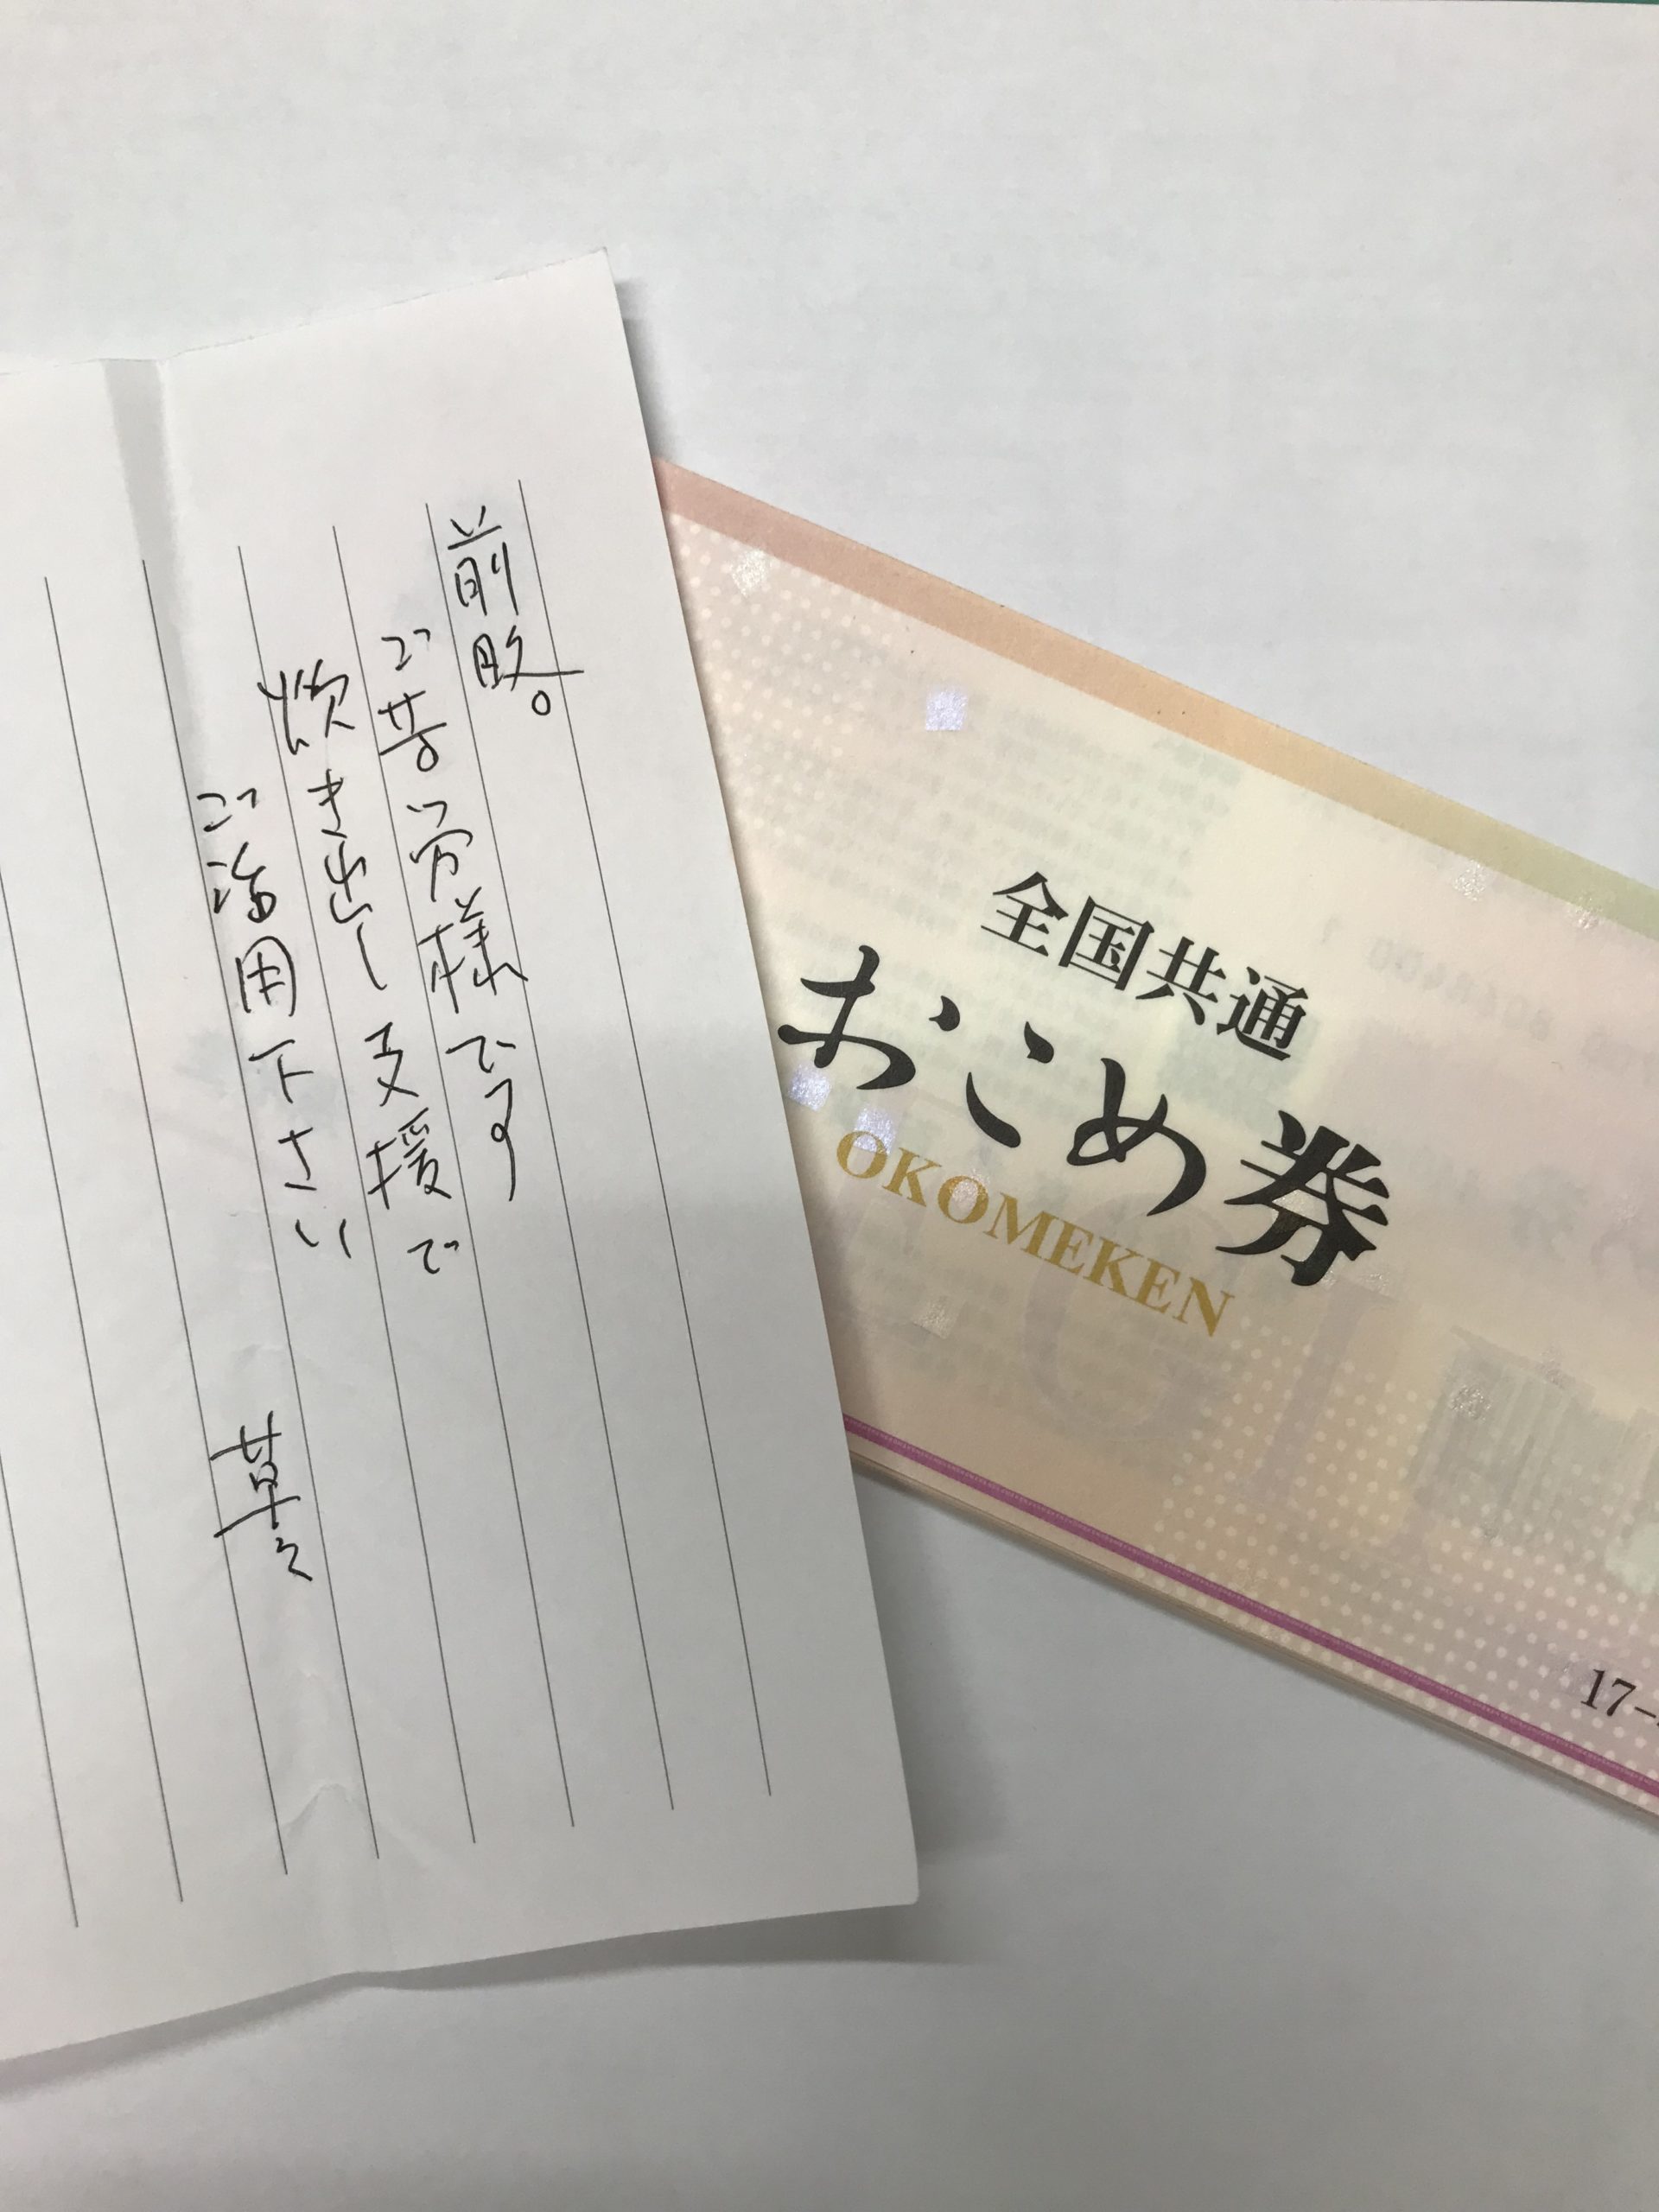 前略。
ご苦労様です
炊き出し支援で
ご活用下さい
草々
全国共通
おこめ券
OKOMEKEN
17-